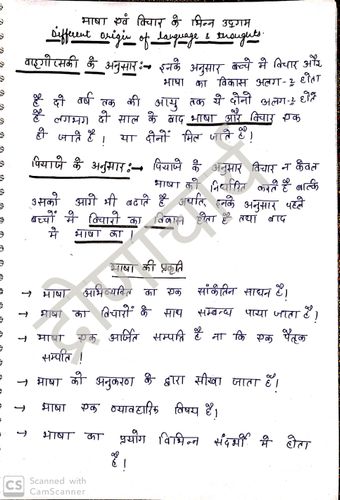 भाषा एवं विचार के भिन्न उद्गम
Different origin of language & thoughts.
वाइगोत्सकी के अनुसार:→ इनके अनुसार बच्चे में विचार और
भाषा का विकास अलग-2 होता
है दो वर्ष तक की आयु तक ये दोनों अलग-2 होते
है लगभग दो साल के बाद भाषा और विचार एक
हो जाते है! या दोनों मिल जाते है!
पियाजे के अनुसार:→ पियाजे के अनुसार विचार न केवल
भाषा को निर्धारित करते है बल्कि
उसको आगे भी बढाते है अर्थात् इनके अनुसार पहले
बच्चों में विचारों का विकास होता है तथा बाद
में भाषा का।
भाषा की प्रकृति
→ भाषा अभिव्यक्ति का एक सांकेतिन साधन है!
→ भाषा का विचारों के साथ सम्बन्ध पाया जाता है!
→ भाषा एक अर्जित सम्पति है ना कि एक पैतृक
सम्पति।
→ भाषा को अनुकरण के द्वारा सीखा जाता है!
→ भाषा एक व्यावहारिक विषय है!
→ भाषा का प्रयोग विभिन्न संदर्भो में होता
है!
द्रोणाचार्य
CS Scanned with
CamScanner